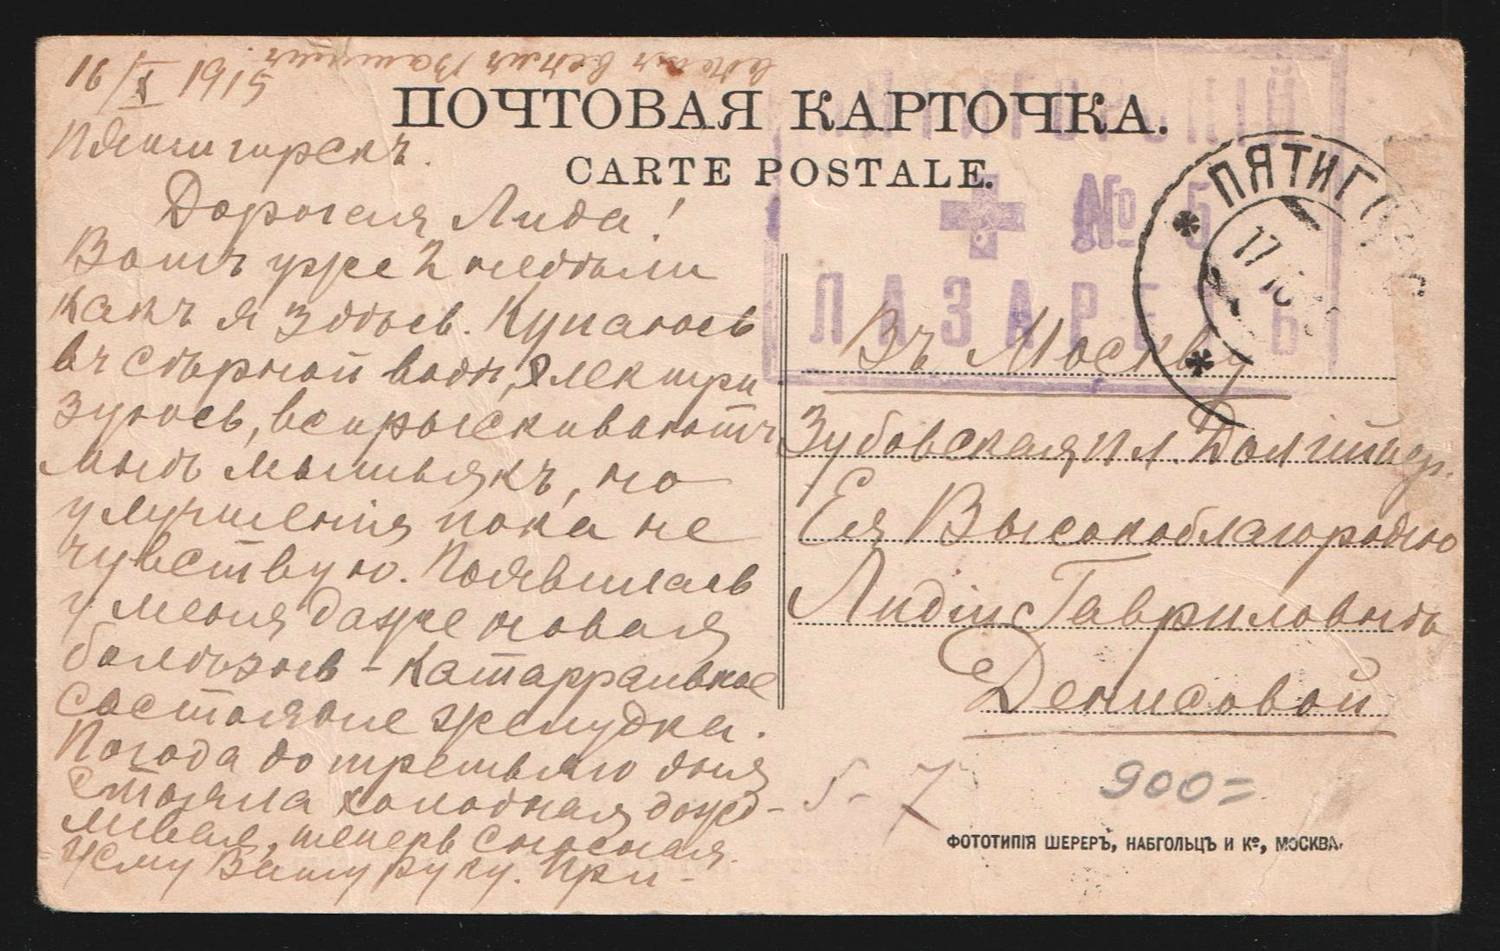 16/X 1915
Пятигорскъ.
Дорогая Лида!
Вотъ уже 2 недѣли
какъ я здѣсь. Купаюсь
въ сѣрной водѣ, электри
зуюсь, вспрыскиваютъ
мнѣ мышьякъ, но
улучшенія пока не
чувствую. Появилась
у меня даже новая
болѣзнь - катарральное
состояніе желудка.
Погода до третьяго дня
стояла холодная дожд-
ливая, теперь сносная.
Жму Вашу руку. При-
всѣмъ Вашимъ.
ПОЧТОВАЯ КАРТОЧКА.
CARTE POSTALE.
ПЯТИГОРСКІЙ
№ 5
ЛАЗАРЕТЪ
ПЯТИГОРСК
17 10 15
Въ Москву
Зубовская пл. Долгій пр.
Ея Высокоблагородію
Лидіи Гавриловнѣ
Денисовой
5-7
900=
ФОТОТИПІЯ ШЕРЕРЪ, НАБГОЛЬЦЪ И Кº, МОСКВА.